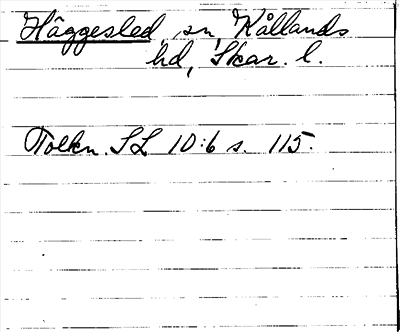 Häggesled, sn, Kållands
hd, Skar. l.
Tolkn. SL 10:6 s. 115.